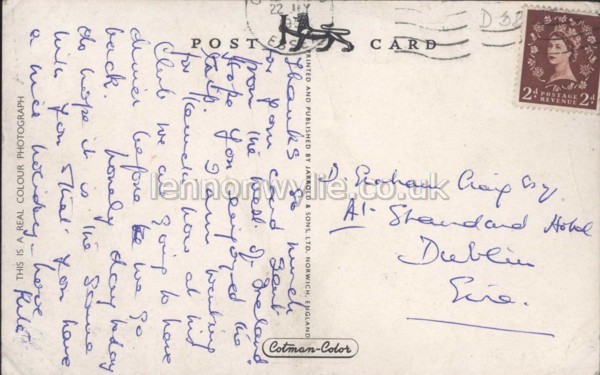 22 MY
D 32
POST CARD
2D POSTAGE REVENUE 2D
THIS IS A REAL COLOUR PHOTOGRAPH
PRINTED AND PUBLISHED BY JARROLD & SONS, LTD. NORWICH, ENGLAND
Cotman-Color
Thanks so much
for your card sent
from the boat of Ireland
hope you enjoyed the
trip. I am waiting
for now at his
Club we are going to have
dinner before we go
back. lovely day today
do hope it is the same
with you & that you have
a nice holiday - love
D. Graham Craig Esq.
At - Standard Hotel
Dublin
Eire.
lennonwylie.co.uk